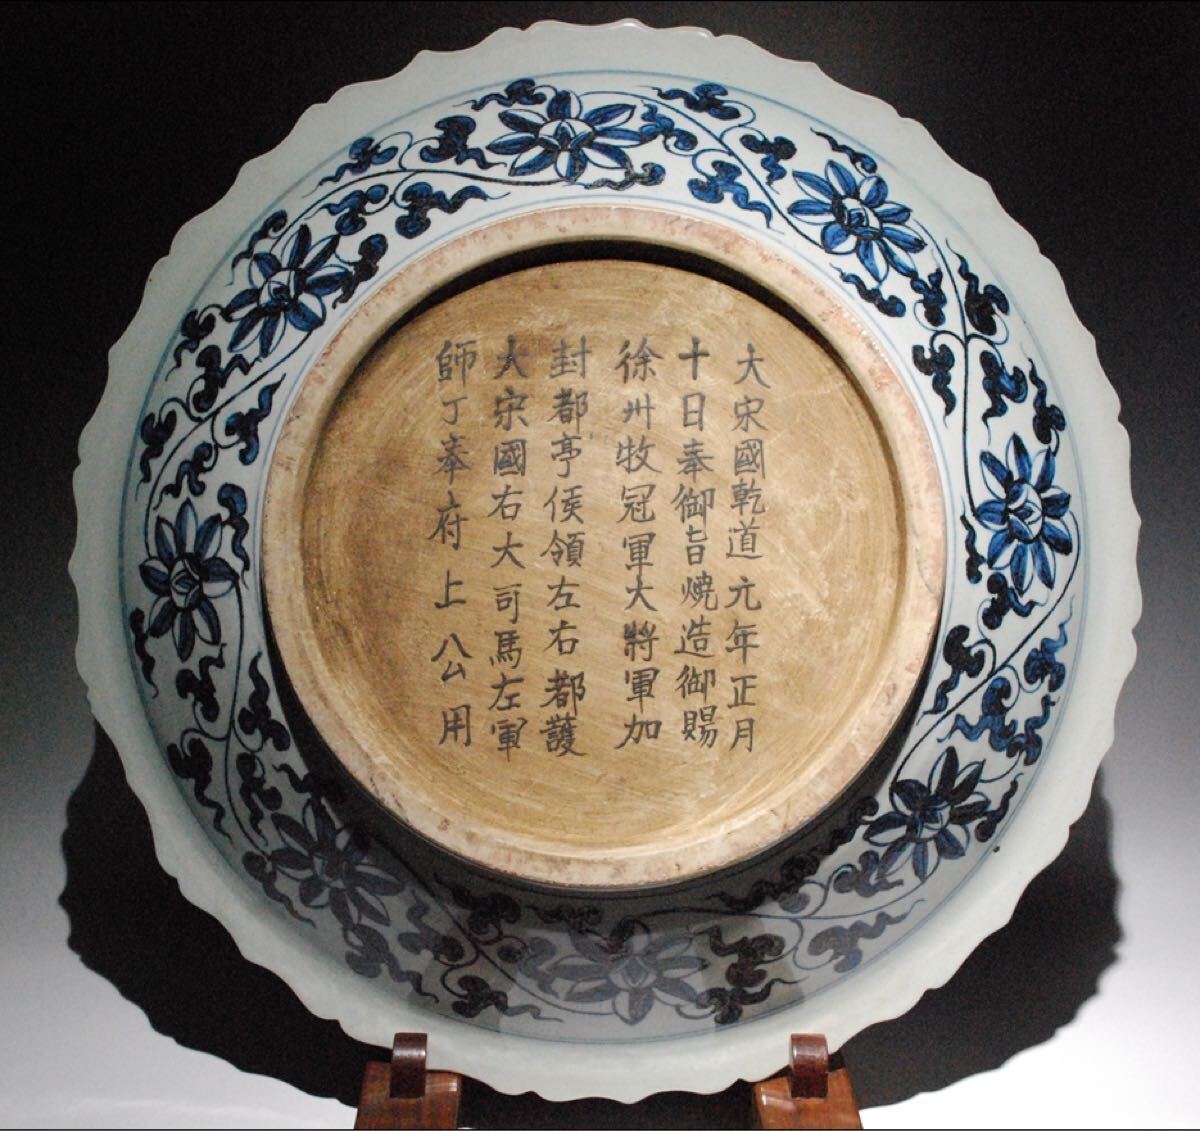 大宋國乾道元年正月
十日奉御旨燒造御賜
徐州牧冠軍大將軍加
封都亭侯領左右都護
大宋國右大司馬左軍
師丁奉府上公用